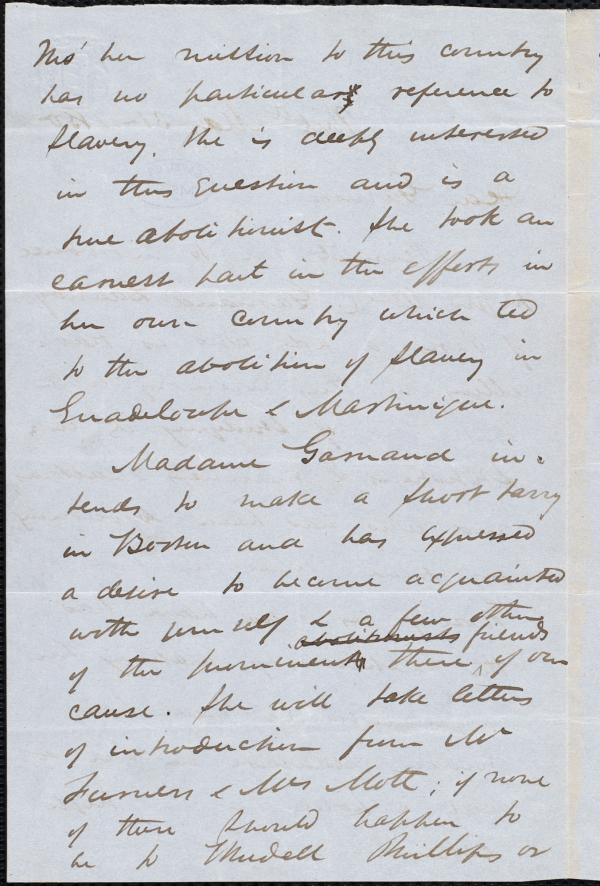 Tho' her mission to this country
has no particular reference to
Slavery. She is deeply interested
in this question and is a
true abolitionist. She took an
earnest part in the efforts in
her own country which led
to the abolition of Slavery in
Guadeloupe & Martinique.
Madame Garnaud in-
tends to make a short tarry
in Boston and has expressed
a desire to become acquainted
with yourself & a few other
of the prominent abolitionists friends
there, of our
cause. She will take letters
of introduction from Mr
Furness & Mrs Mott; if none
of these should happen to
be to Wendell Phillips or